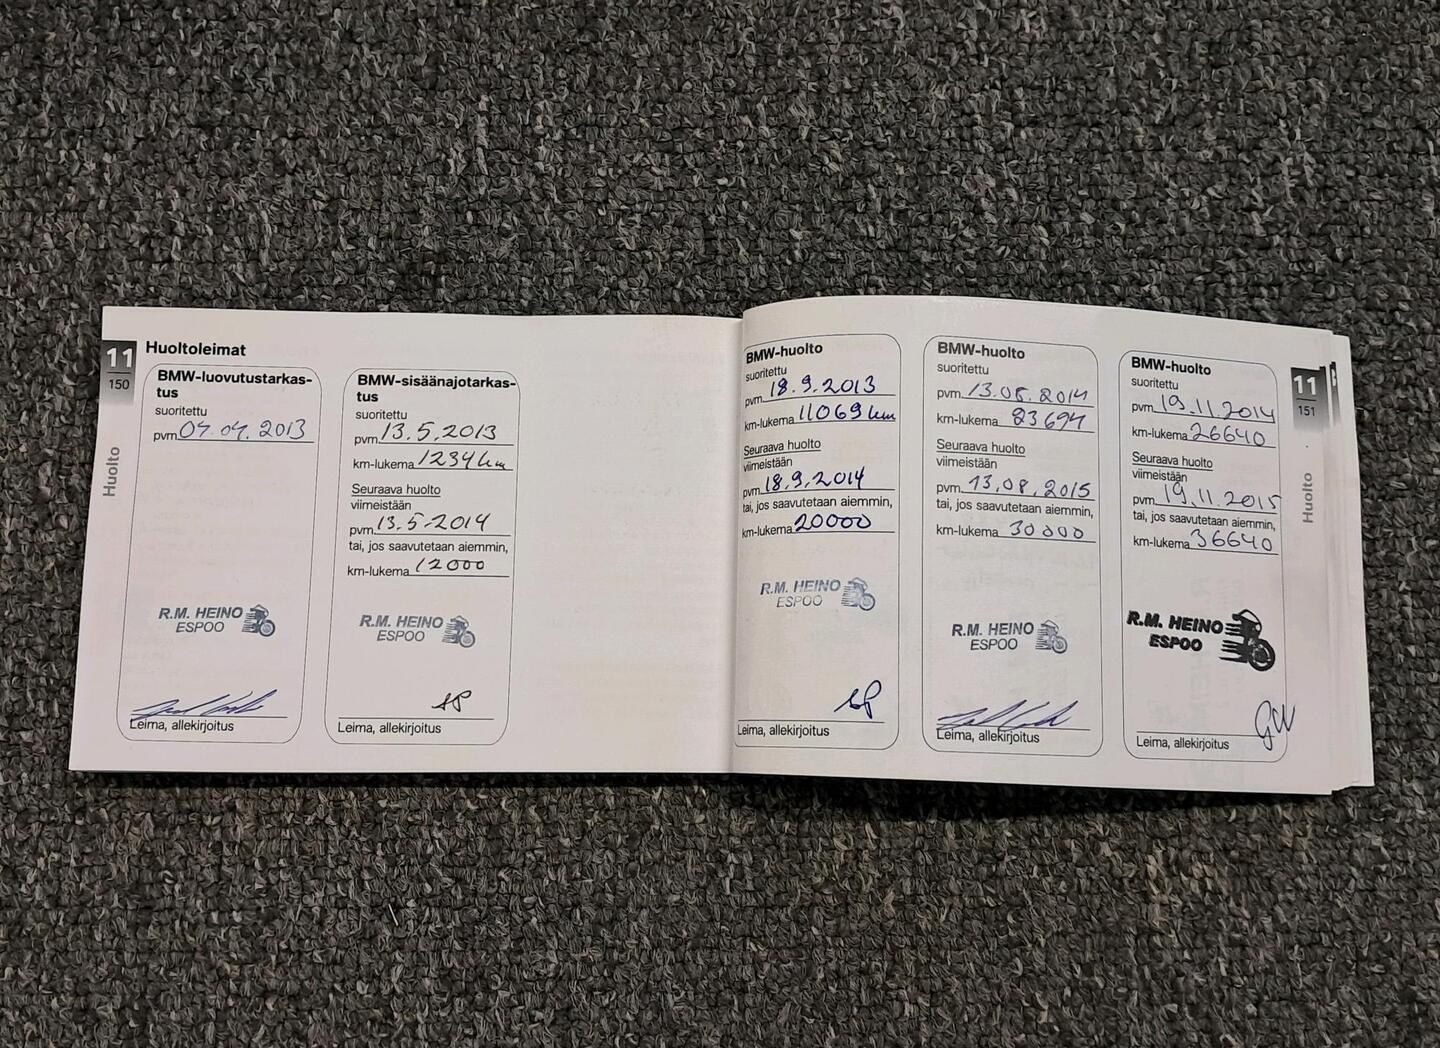 11
150
Huolto
Huoltoleimat
BMW-luovutustarkas-
tus
suoritettu
pvm 04.04.2013
R.M. HEINO
ESPOO
Leima, allekirjoitus
BMW-sisäänajotarkas-
tus
suoritettu
pvm 13.5.2013
km-lukema 1234 km
Seuraava huolto
viimeistään
pvm 13.5.2014
tai, jos saavutetaan aiemmin,
km-lukema 12000
R.M. HEINO
ESPOO
Leima, allekirjoitus
BMW-huolto
suoritettu
pvm 18.9.2013
km-lukema 11069 km
Seuraava huolto
viimeistään
pvm 18.9.2014
tai, jos saavutetaan aiemmin,
km-lukema 20000
R.M. HEINO
ESPOO
Leima, allekirjoitus
BMW-huolto
suoritettu
pvm 13.08.2014
km-lukema 23694
Seuraava huolto
viimeistään
pvm 13.08.2015
tai, jos saavutetaan aiemmin,
km-lukema 30000
R.M. HEINO
ESPOO
Leima, allekirjoitus
BMW-huolto
suoritettu
pvm 19.11.2014
km-lukema 26640
Seuraava huolto
viimeistään
pvm 19.11.2015
tai, jos saavutetaan aiemmin,
km-lukema 36640
R.M. HEINO
ESPOO
Leima, allekirjoitus
11
151
Huolto